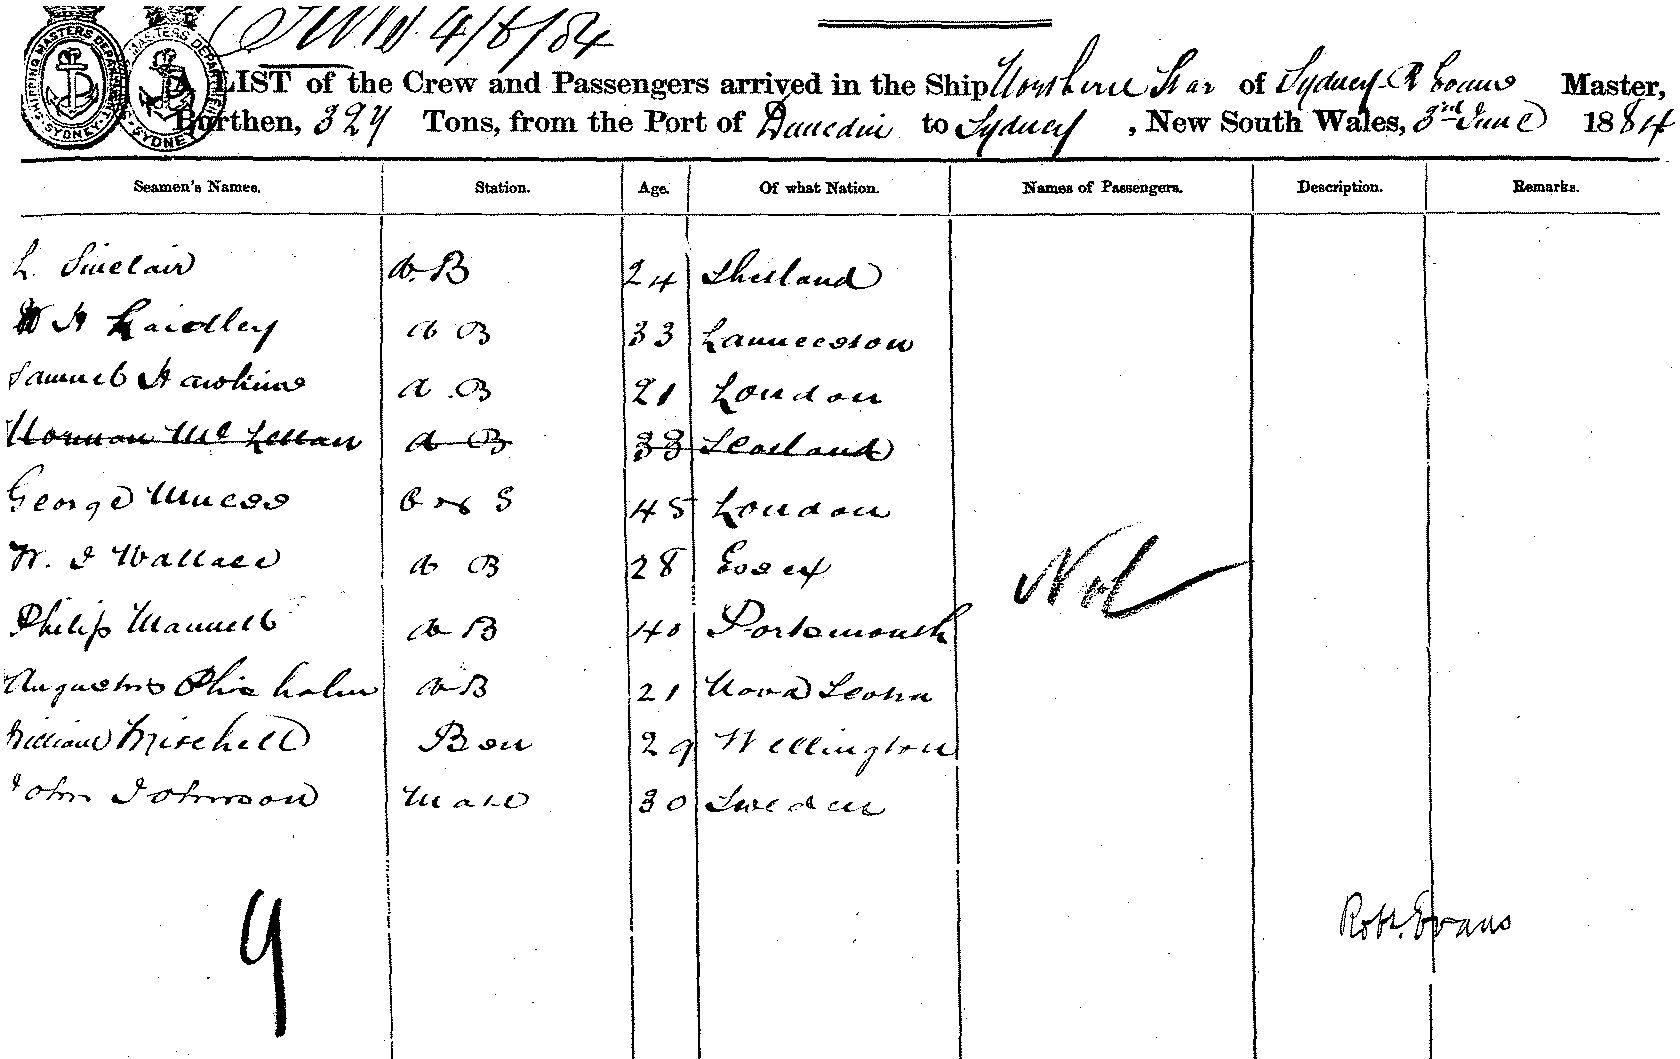 4/6/84
A LIST of the Crew and Passengers arrived in the Ship Northern Star of Sydney R Evans Master,
Burthen, 327 Tons, from the Port of Dunedin to Sydney, New South Wales, 3rd June 1884
Seamen's Names. Station. Age. Of what Nation. Names of Passengers. Description. Remarks.
L. Sinclair A.B 24 Shetland
W H Laidley A B 33 Launceston
Samuel Hawkins A B 21 London
Norman McLellan A B 38 Scotland
George C & S 45 London
W. J Wallace A B 28 Essex
Philip Mannell A B 40 Portsmouth
Augustus Chisholm A B 21 Nova Scotia
William Mitchell Bsn 29 Wellington
John Johnson Mate 30 Sweden
Nil
Robt. Evans
9